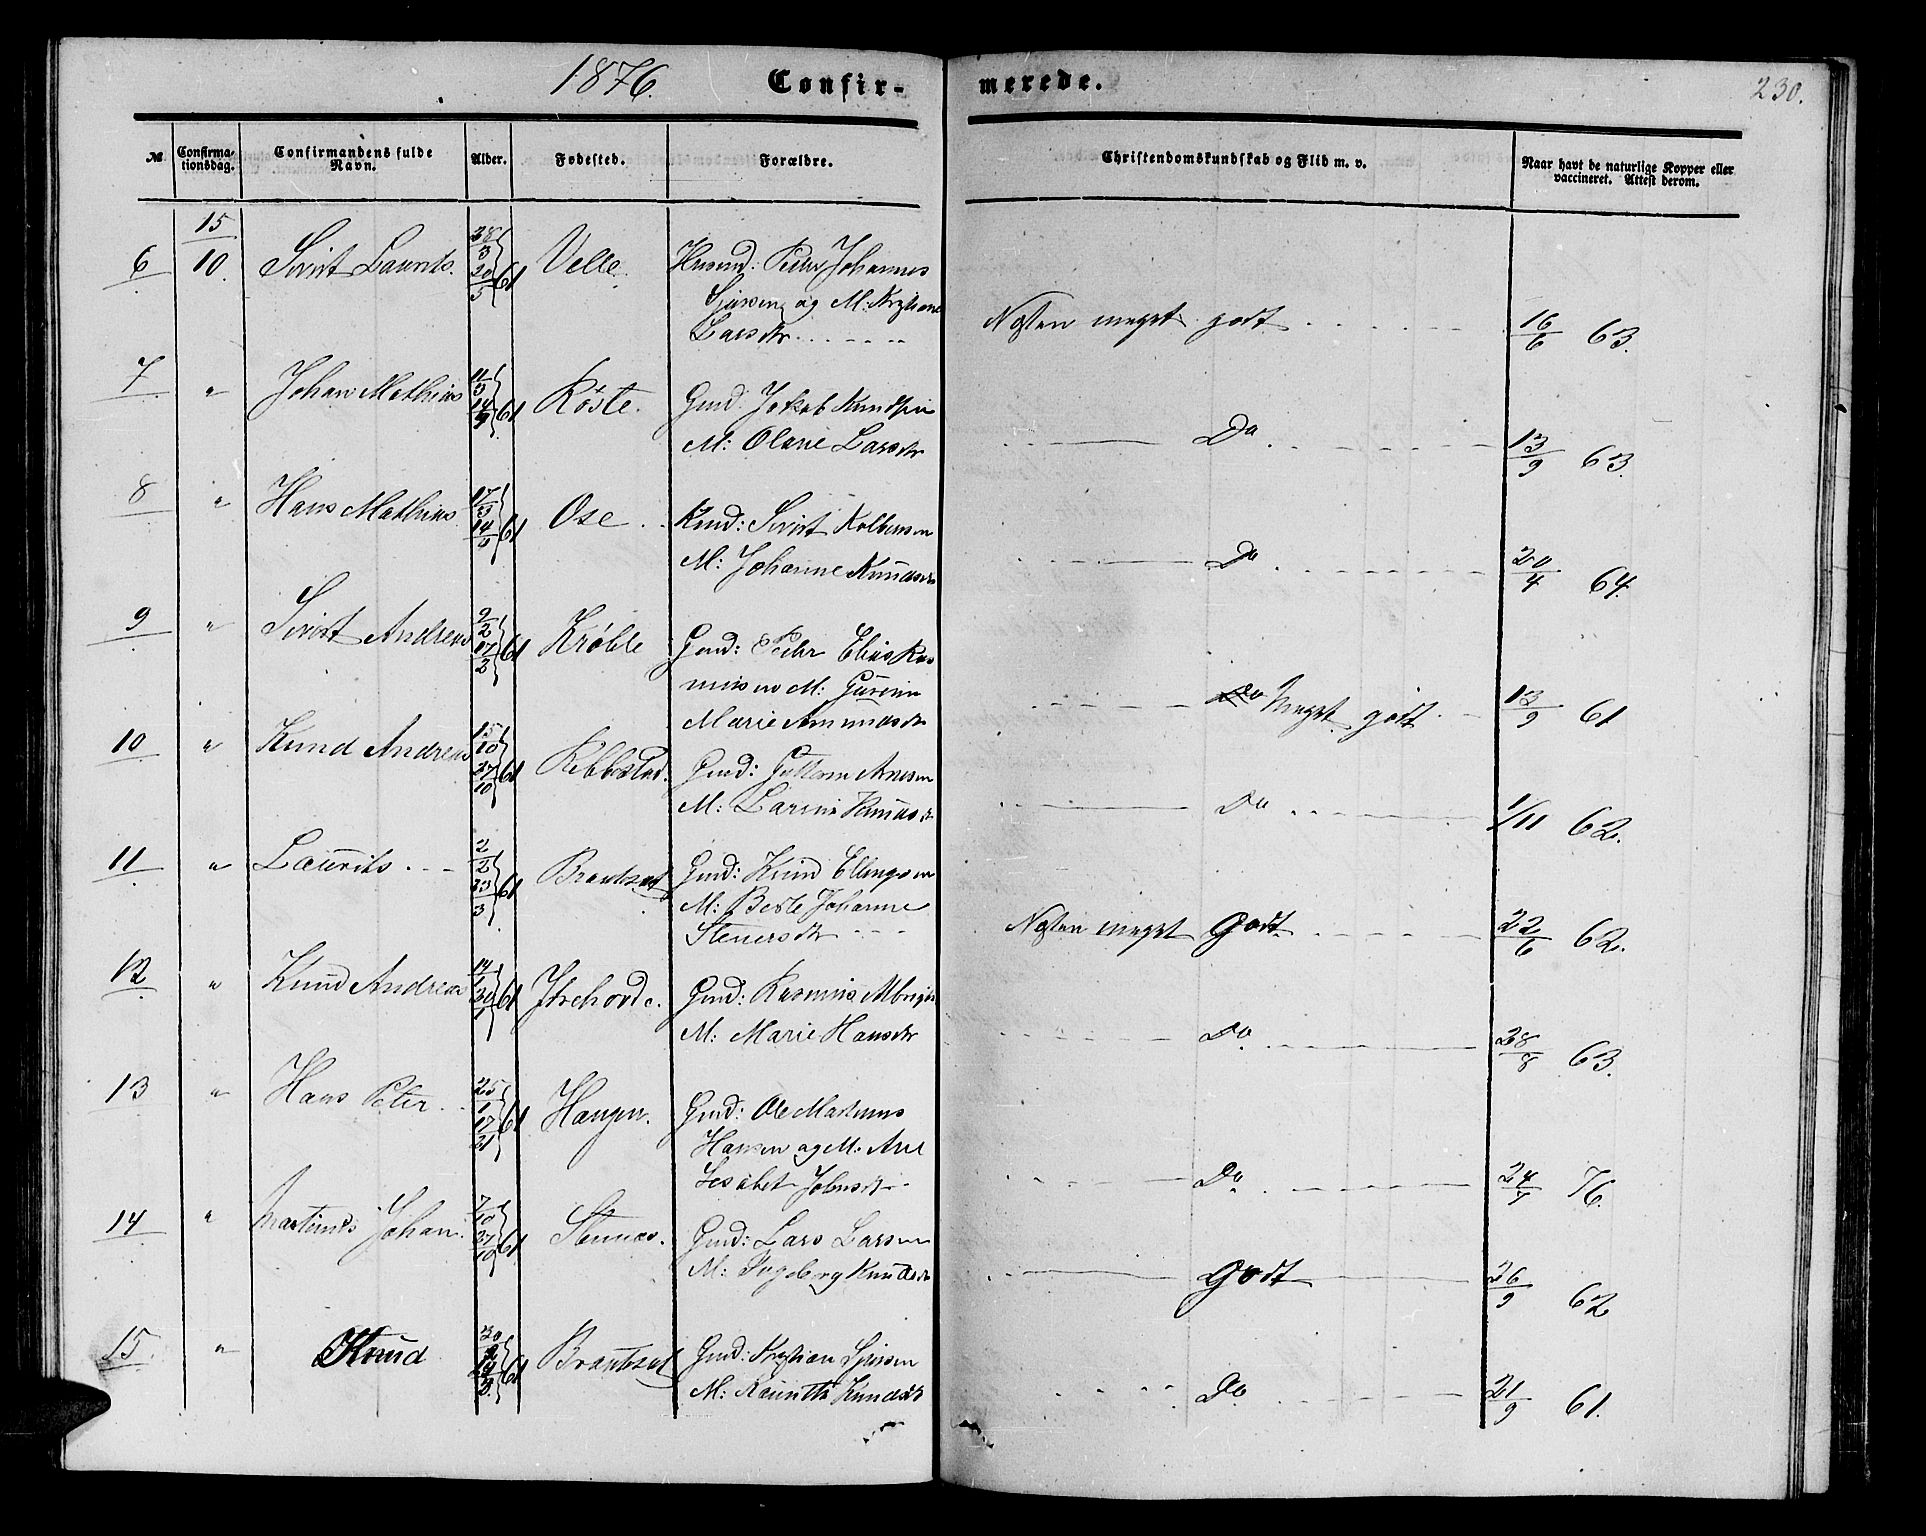 1876. Confir- merede. 230.
№ Confirma-tionsdag. Confirmandens fulde Navn. Alder. Fødested. Forældre. Christendomskundskab og Flid m. v. Naar havt de naturlige Kopper eller vaccineret. Attest derom.
6 15/10. Sivert Laurits. 28/3 20/5 61 Velle. Husmd: Peder Johannes
og M: Kristiane
Larsdtr Næsten meget godt 16/6 63.
7 " Johan Mathias 61 Røste. Gmd. Jakob Knudsen
M: Oline Larsdtr Do 13/9 63.
8 " Hans Mathias 61 Ose Gmd: Sivert Kolbensen
M: Johanne Knudsdtr Do 20/4 64.
9 " Sivert Andreas 2/2 17/2 61 Krøble Gmd: Peder Elias Ras
musen M: Gurine
Marie Amundsdtr Do Meget godt 13/9 61
10 " Knud Andreas 15/10 27/10 61 Rebbestad. Gmd: Guttorm Arnesen
M: Larine Knudsdtr Do 1/11 62.
11 " Laurits 2/2 23/3 61 Brautset Gmd: Knud Ellingsen
M: Berte Johanne
Steffensdtr Næsten meget Godt 22/6 62.
12 " Knud Andreas 14/1 30/1 61 Ytrehovde. Gmd: Rasmus
M: Marie Hansdtr Do 28/8 63.
13 " Hans Peter 25/1 17/21 61 Haugen. Gmd: Ole Martinus
Hansen og M: Ane
Lisabet Johnsdtr Do 24/9 76.
14 " Martinus Johan. 7/10 27/10 61 Stennes. Gmd: Lars Larsen
M: Ingeborg Knudsdtr Godt 26/9 62
15. " Knud 61 Brautset Gmd: Kristian Sjursen
M: Knudsdtr Do 21/9 61.